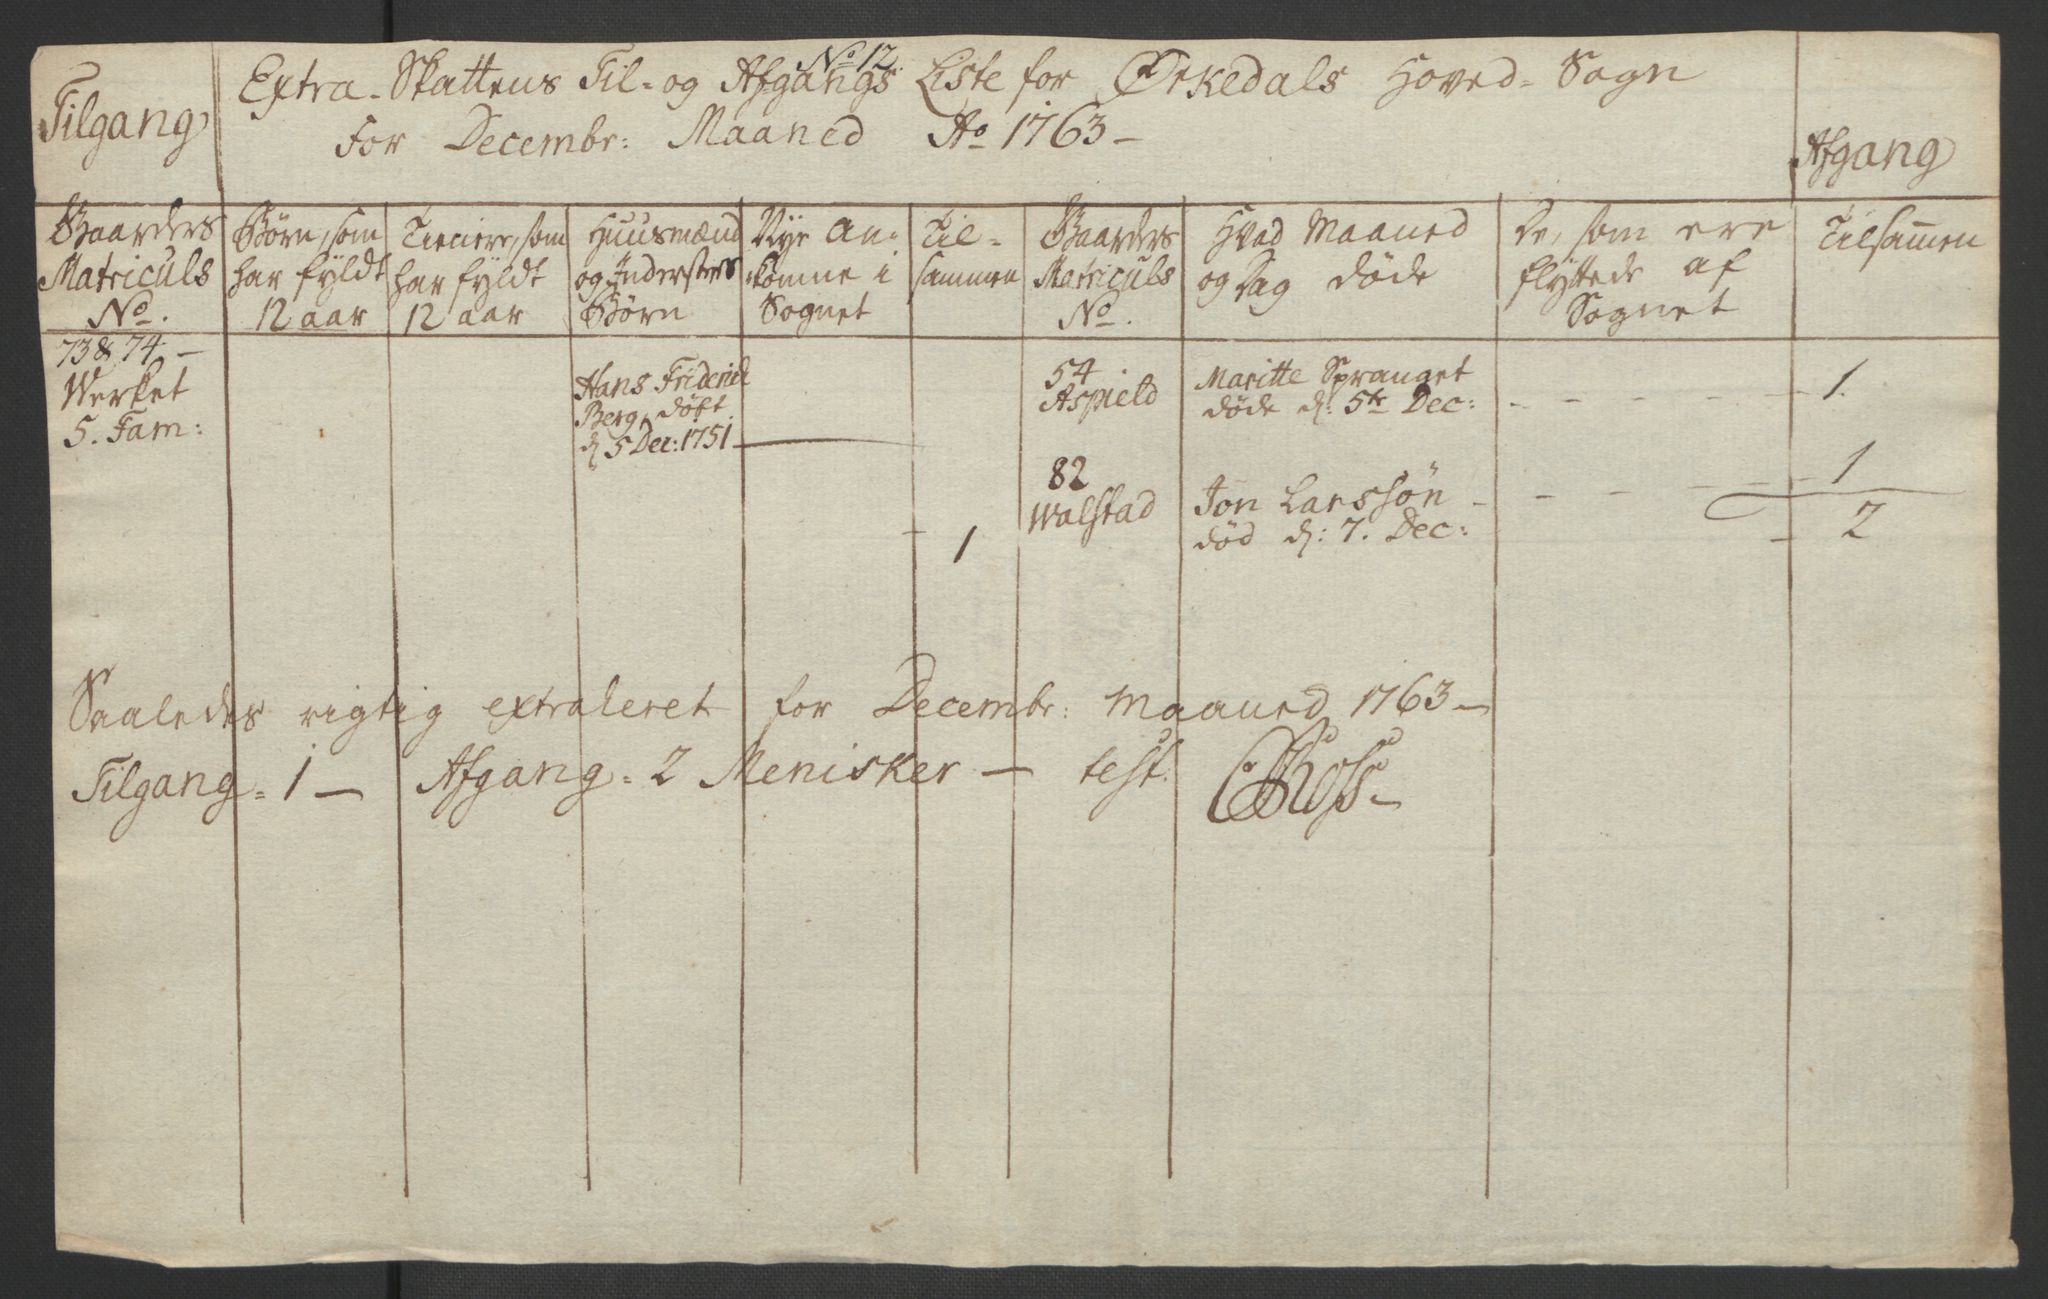 No 12.
Tilgang
Extra-Skattens Til- og Afgangs Liste for Ørkedals Hoved-Sogn
For Decembr: Maaned Ao 1763 -
Afgang
Gaarders Matriculs No.
Børn, som har fyldt 12 aar
Tienere, som har fyldt 12 aar
Huusmænd og Indersters Børn
Nye An-komne i Sognet
Til-sammen
Gaarders Matriculs No.
Hvad Maaned og Dag døde
De, som ere flyttede af Sognet
Tilsamen
73 & 74 -
Werket
5. Fam:
Hans Friderich
Berg, døbt
d: 5 Dec: 1751
1
54
Aspield
Maritte Spranget
døde d: 5te Dec:
1.
82
Walstad
Jon Larssøn
død d: 7. Dec:
1
2
Saaledes rigtig extraheret for Decembr: Maaned 1763 -
Tilgang = 1 - Afgang = 2 Menisker - test.